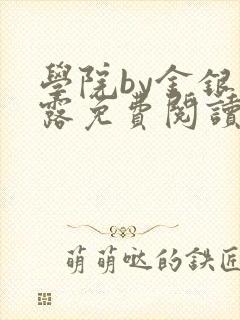 學院by金銀
露免費閱讀
萌萌噠的鉄匠